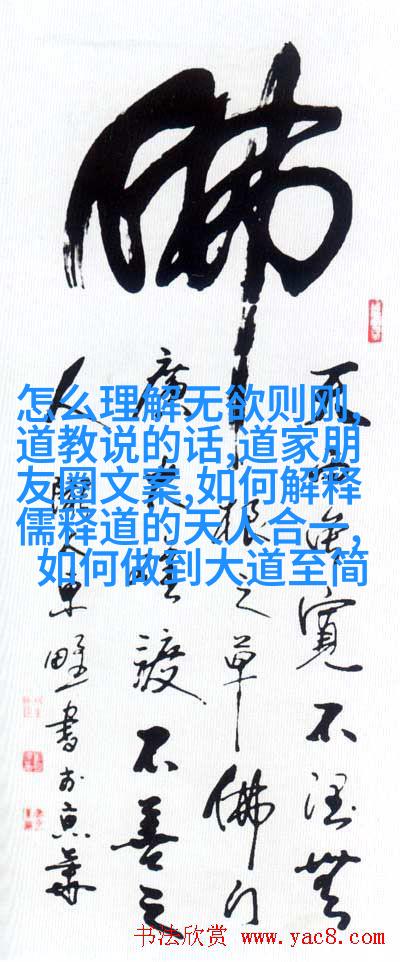 佛
怎么理解无欲则刚,
道教说的话,道家朋
友圈文案,如何解释
儒释道的天人合一,
如何做到大道至简
天雨雖寬不潤無
根之草佛门
廣大難渡不善之
人 書於京華
书法欣赏 www.yac8.com